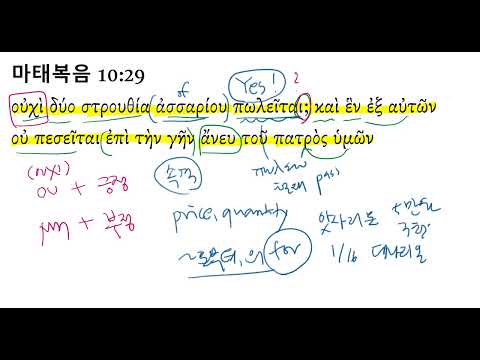 마태복음 10:29
of Yes! 2
οὐχὶ δύο στρουθία ἀσσαρίου πωλεῖται; καὶ ἓν ἐξ αὐτῶν
οὐ πεσεῖται ἐπὶ τὴν γῆν ἄνευ τοῦ πατρὸς ὑμῶν
(ουχι)
ου + 긍정
속격
μη + 부정
price, quantity
~로부터, 의 for
앗사리온
1/16 데나리온